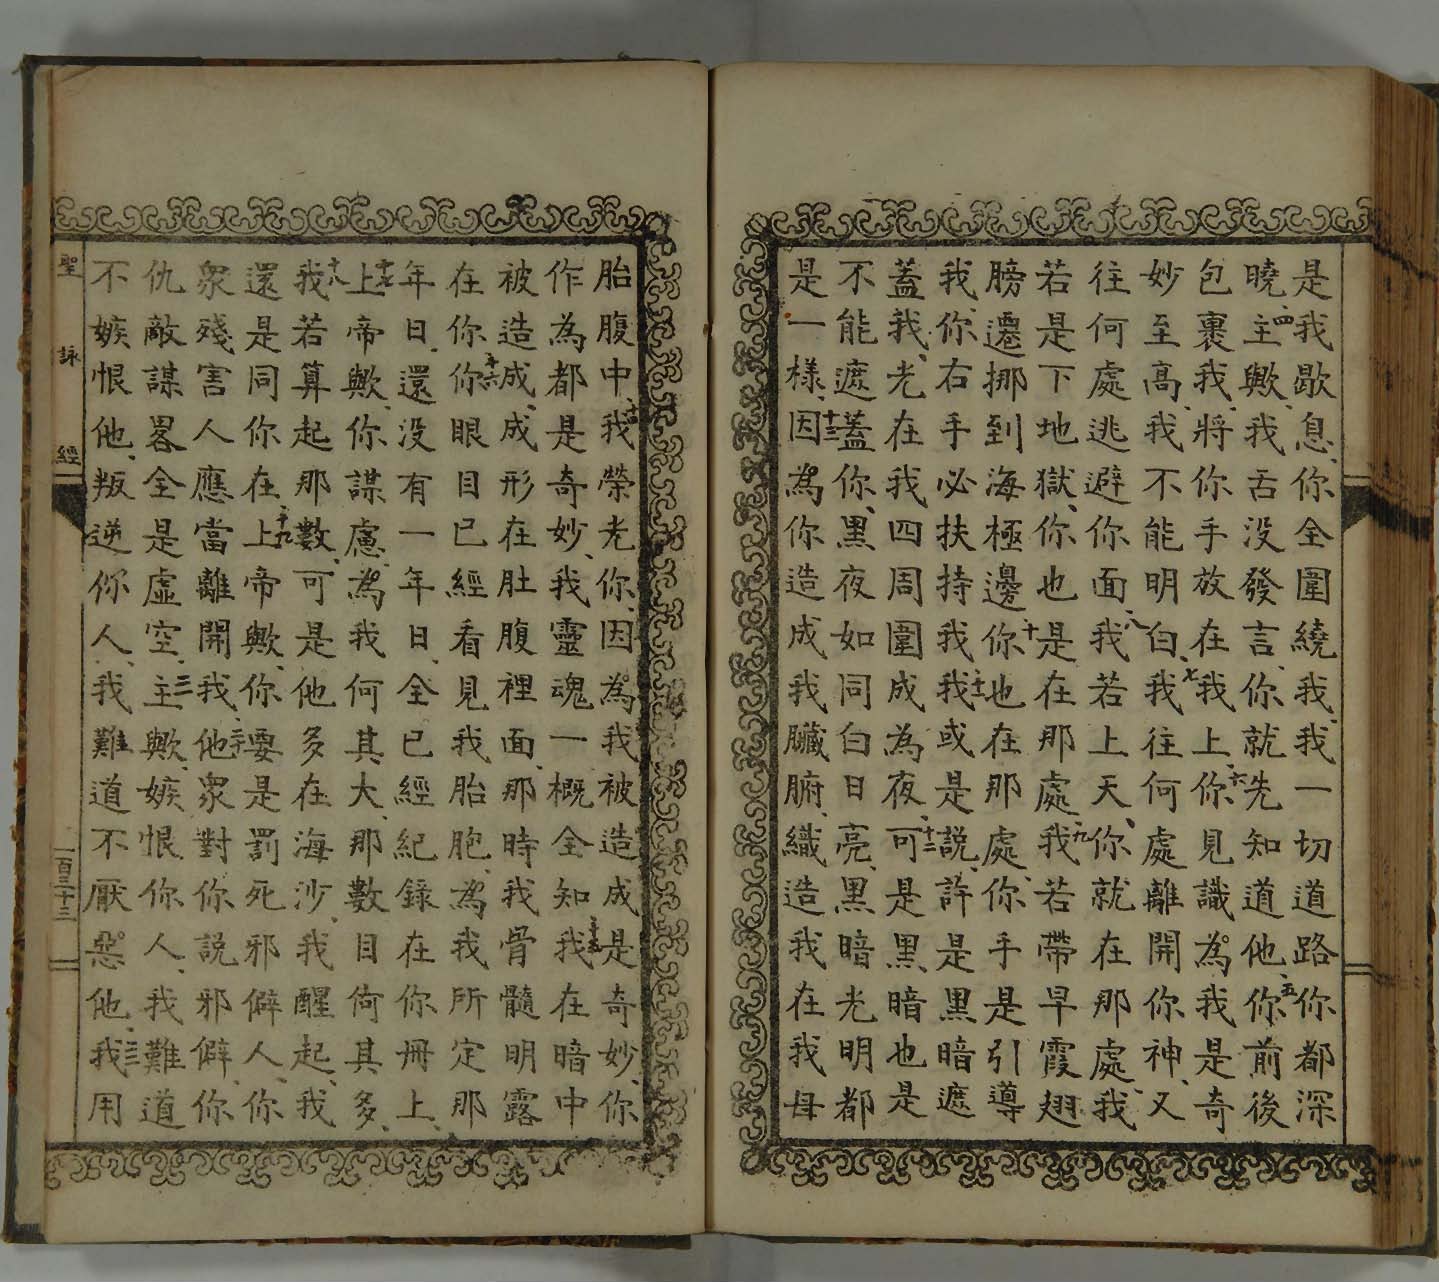 是我歇息、你全圍繞我、我一切道路你都深
曉、四主歟、我舌没發言、你就先知道他、五你前後
包裹我、將你手放在我上、六你見識為我是奇
妙至高、我不能明白、七我往何處離開你神、又
往何處逃避你面、八我若上天、你就在那處、我
若是下地獄、你也是在那處、九我若帶早霞翅
膀遷挪到海極邊、十你也在那處、你手是引導
我、你右手必扶持我、十一我或是説、許是黑暗遮
蓋我、光在我四周圍成為夜、十二可是黑暗也是
不能遮蓋你、黑夜如同白日亮、黑暗光明都
是一樣、十三因為你造成我臟腑、織造我在我母
胎腹中、十四我榮光你、因為我被造成是奇妙、你
作為都是奇妙、我靈魂一概全知、十五我在暗中
被造成、成形在肚腹裡面、那時我骨髓明露
在你、十六你眼目已經看見我胎胞、為我所定那
年日、還没有一年日、全已經紀錄在你冊上、
十七上帝歟、你謀慮、為我何其大、那數目何其多、
十八我若算起那數、可是他多在海沙、我醒起、我
還是同你在上、十九上帝歟、你要是罰死邪僻人、你
衆殘害人應當離開我、二十他衆對你説邪僻、你
仇敵謀畧全是虛空、二一主歟、嫉恨你人、我難道
不嫉恨他、叛逆你人、我難道不厭惡他、二二我用
聖詠經
一百三十三